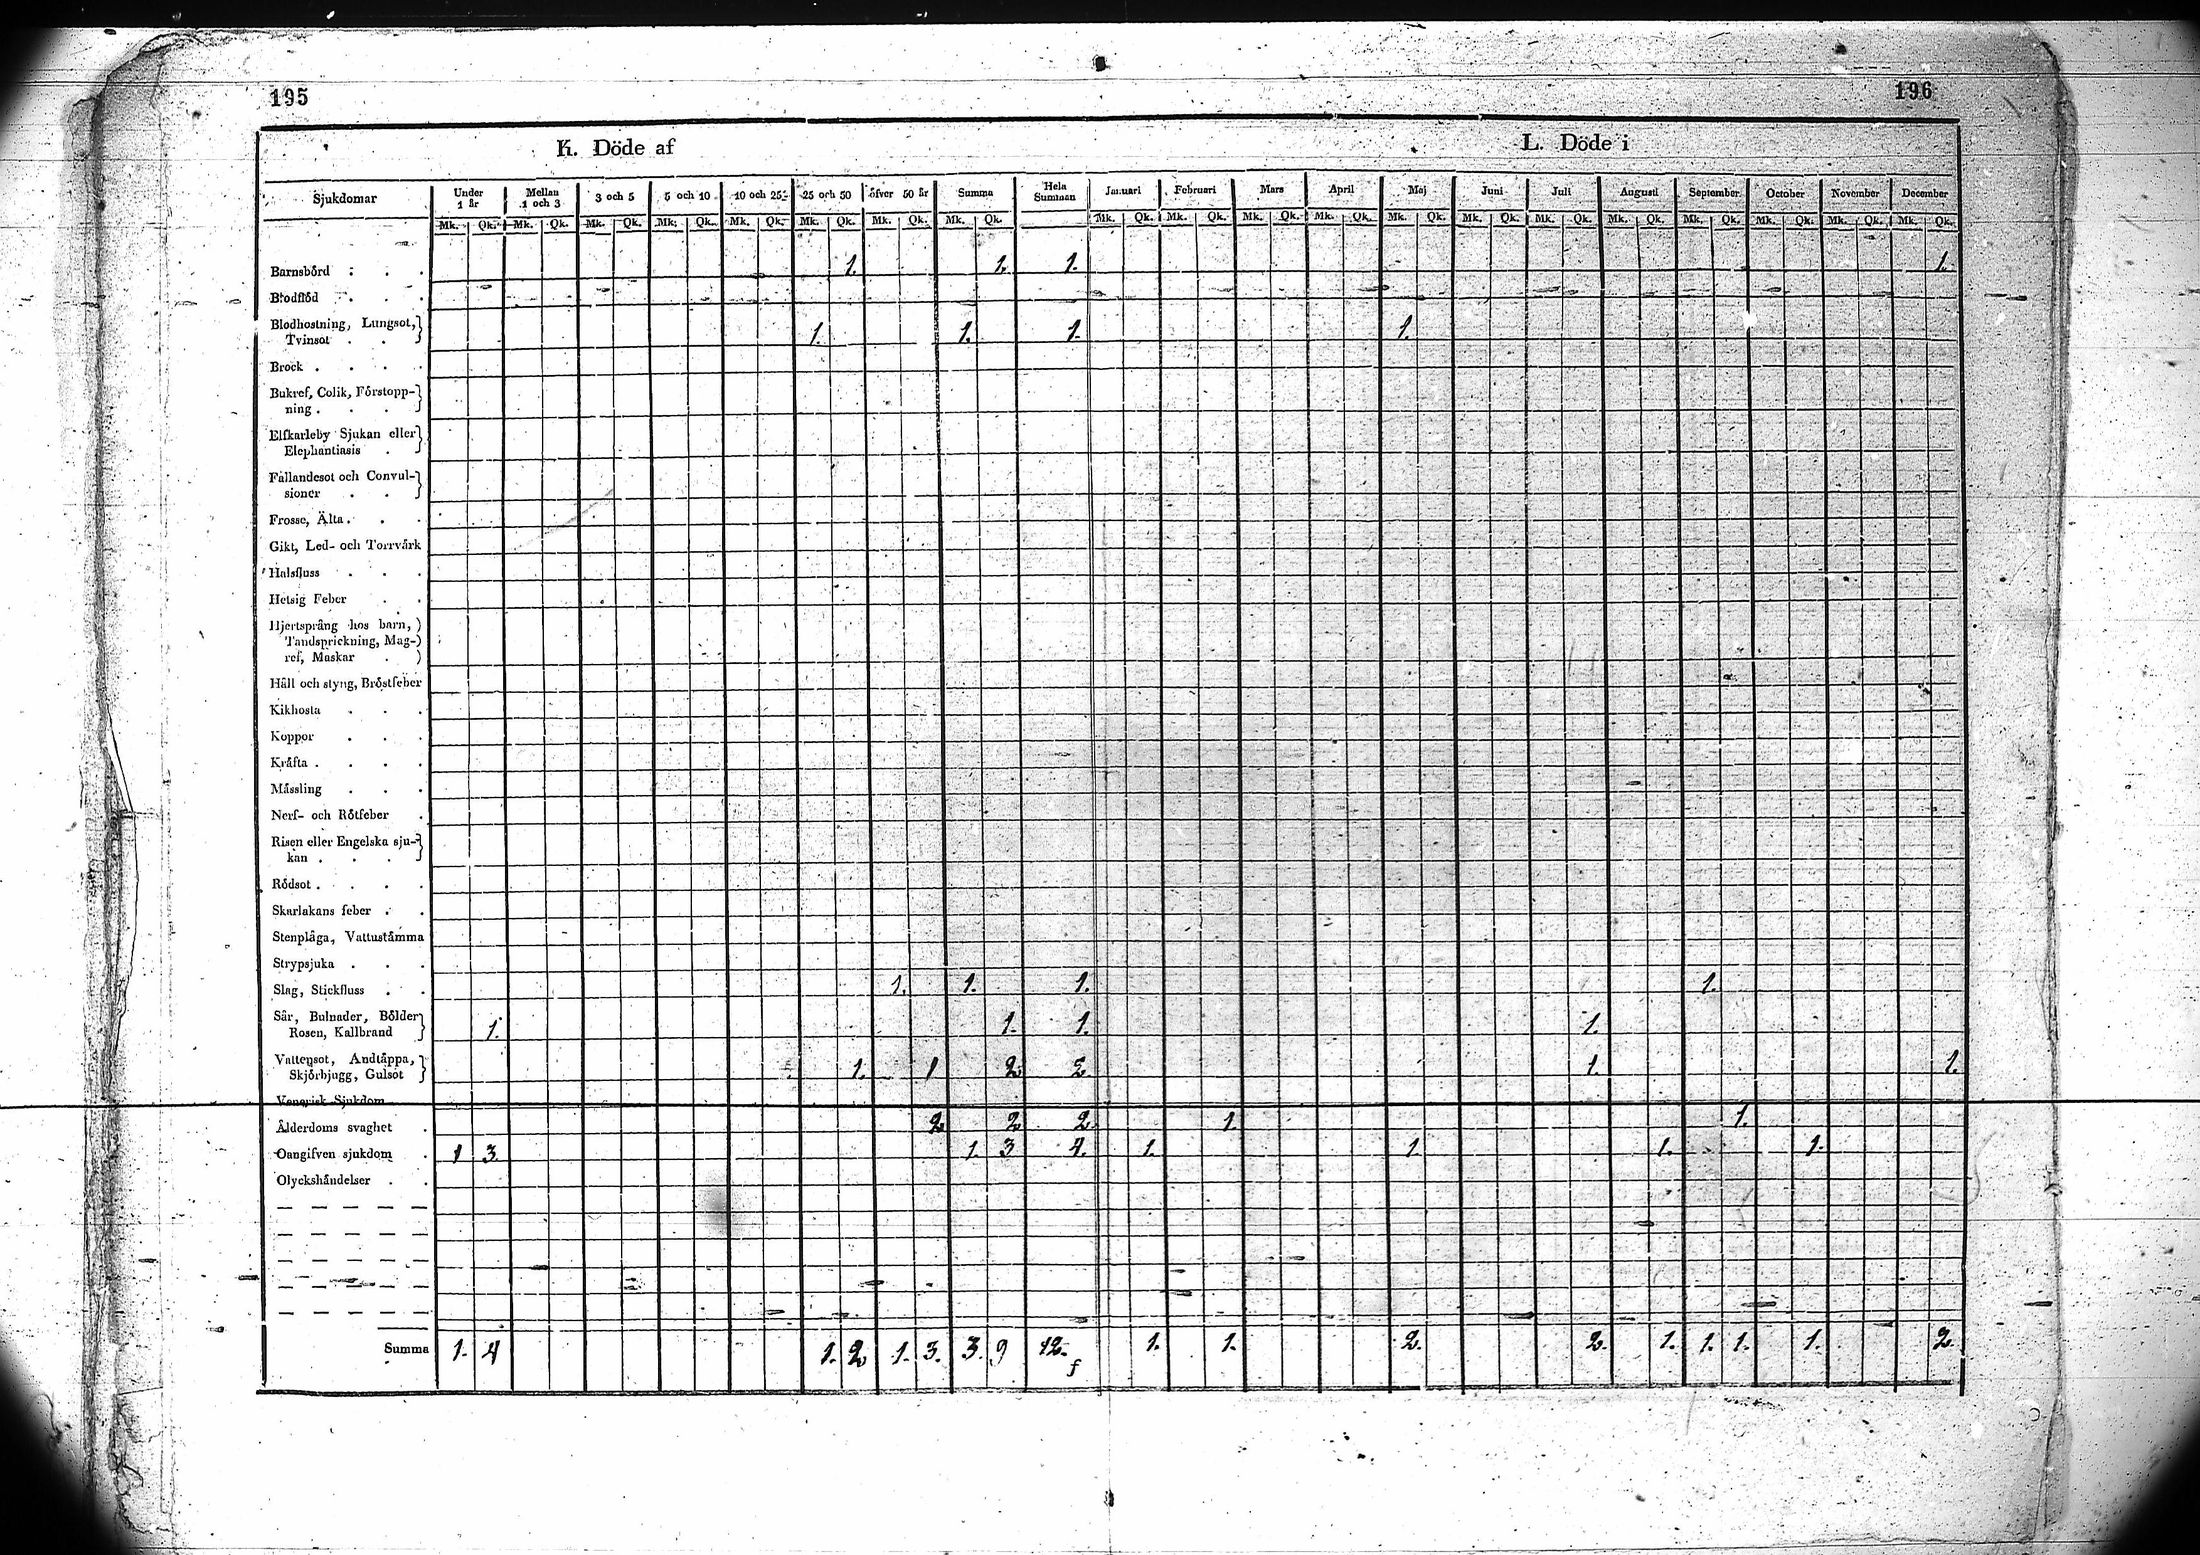 195
196
K. Döde af
L. Döde i
Sjukdomar Under 1 år Mellan 1 och 3 3 och 5 5 och 10 10 och 25 25 och 50 öfver 50 år Summa Hela Summan Januari Februari Mars April Maj Juni Juli Augusti September October November December
Mk. Qk. Mk. Qk. Mk. Qk. Mk. Qk. Mk. Qk. Mk. Qk. Mk. Qk. Mk. Qk. Mk. Qk. Mk. Qk. Mk. Qk. Mk. Qk. Mk. Qk. Mk. Qk. Mk. Qk. Mk. Qk. Mk. Qk. Mk. Qk. Mk. Qk. Mk. Qk.
Barnsbörd . . . 1. 1. 1. 1.
Blodflöd . . .
Blodhostning, Lungsot,
Tvinsot . . 1. 1. 1. 1.
Brock . . . .
Bukref, Colik, Förstopp-
ning . . .
Elfkarleby Sjukan eller
Elephantiasis .
Fallandesot och Convul-
sioner . .
Frosse, Älta . . .
Gikt, Led- och Torrvärk
Halsfluss . . .
Hetsig Feber . .
Hjertsprång hos barn,
Tandsprickning, Mag-
ref, Maskar .
Håll och styng, Bröstfeber
Kikhosta . . .
Koppor . . .
Kräfta . . . .
Mässling . . .
Nerf- och Rötfeber .
Risen eller Engelska sju-
kan . . .
Rödsot . . . .
Skarlakans feber . .
Stenplåga, Vattustämma
Strypsjuka . . .
Slag, Stickfluss . . 1. 1. 1. 1.
Sår, Bulnader, Bölder
Rosen, Kallbrand 1. 1. 1. 1.
Vattensot, Andtäppa,
Skjörbjugg, Gulsot 1. 1 2 2. 1. 1.
Venerisk Sjukdom
Ålderdoms svaghet . 2 2 2. 1. 1.
Oangifven sjukdom . 1 3 1. 3 4. 1. 1 1. 1.
Olyckshändelser . .
Summa 1. 4 1. 2 1. 3. 3. 9 12. f 1. 1. 2. 2. 1. 1. 1. 1. 2.